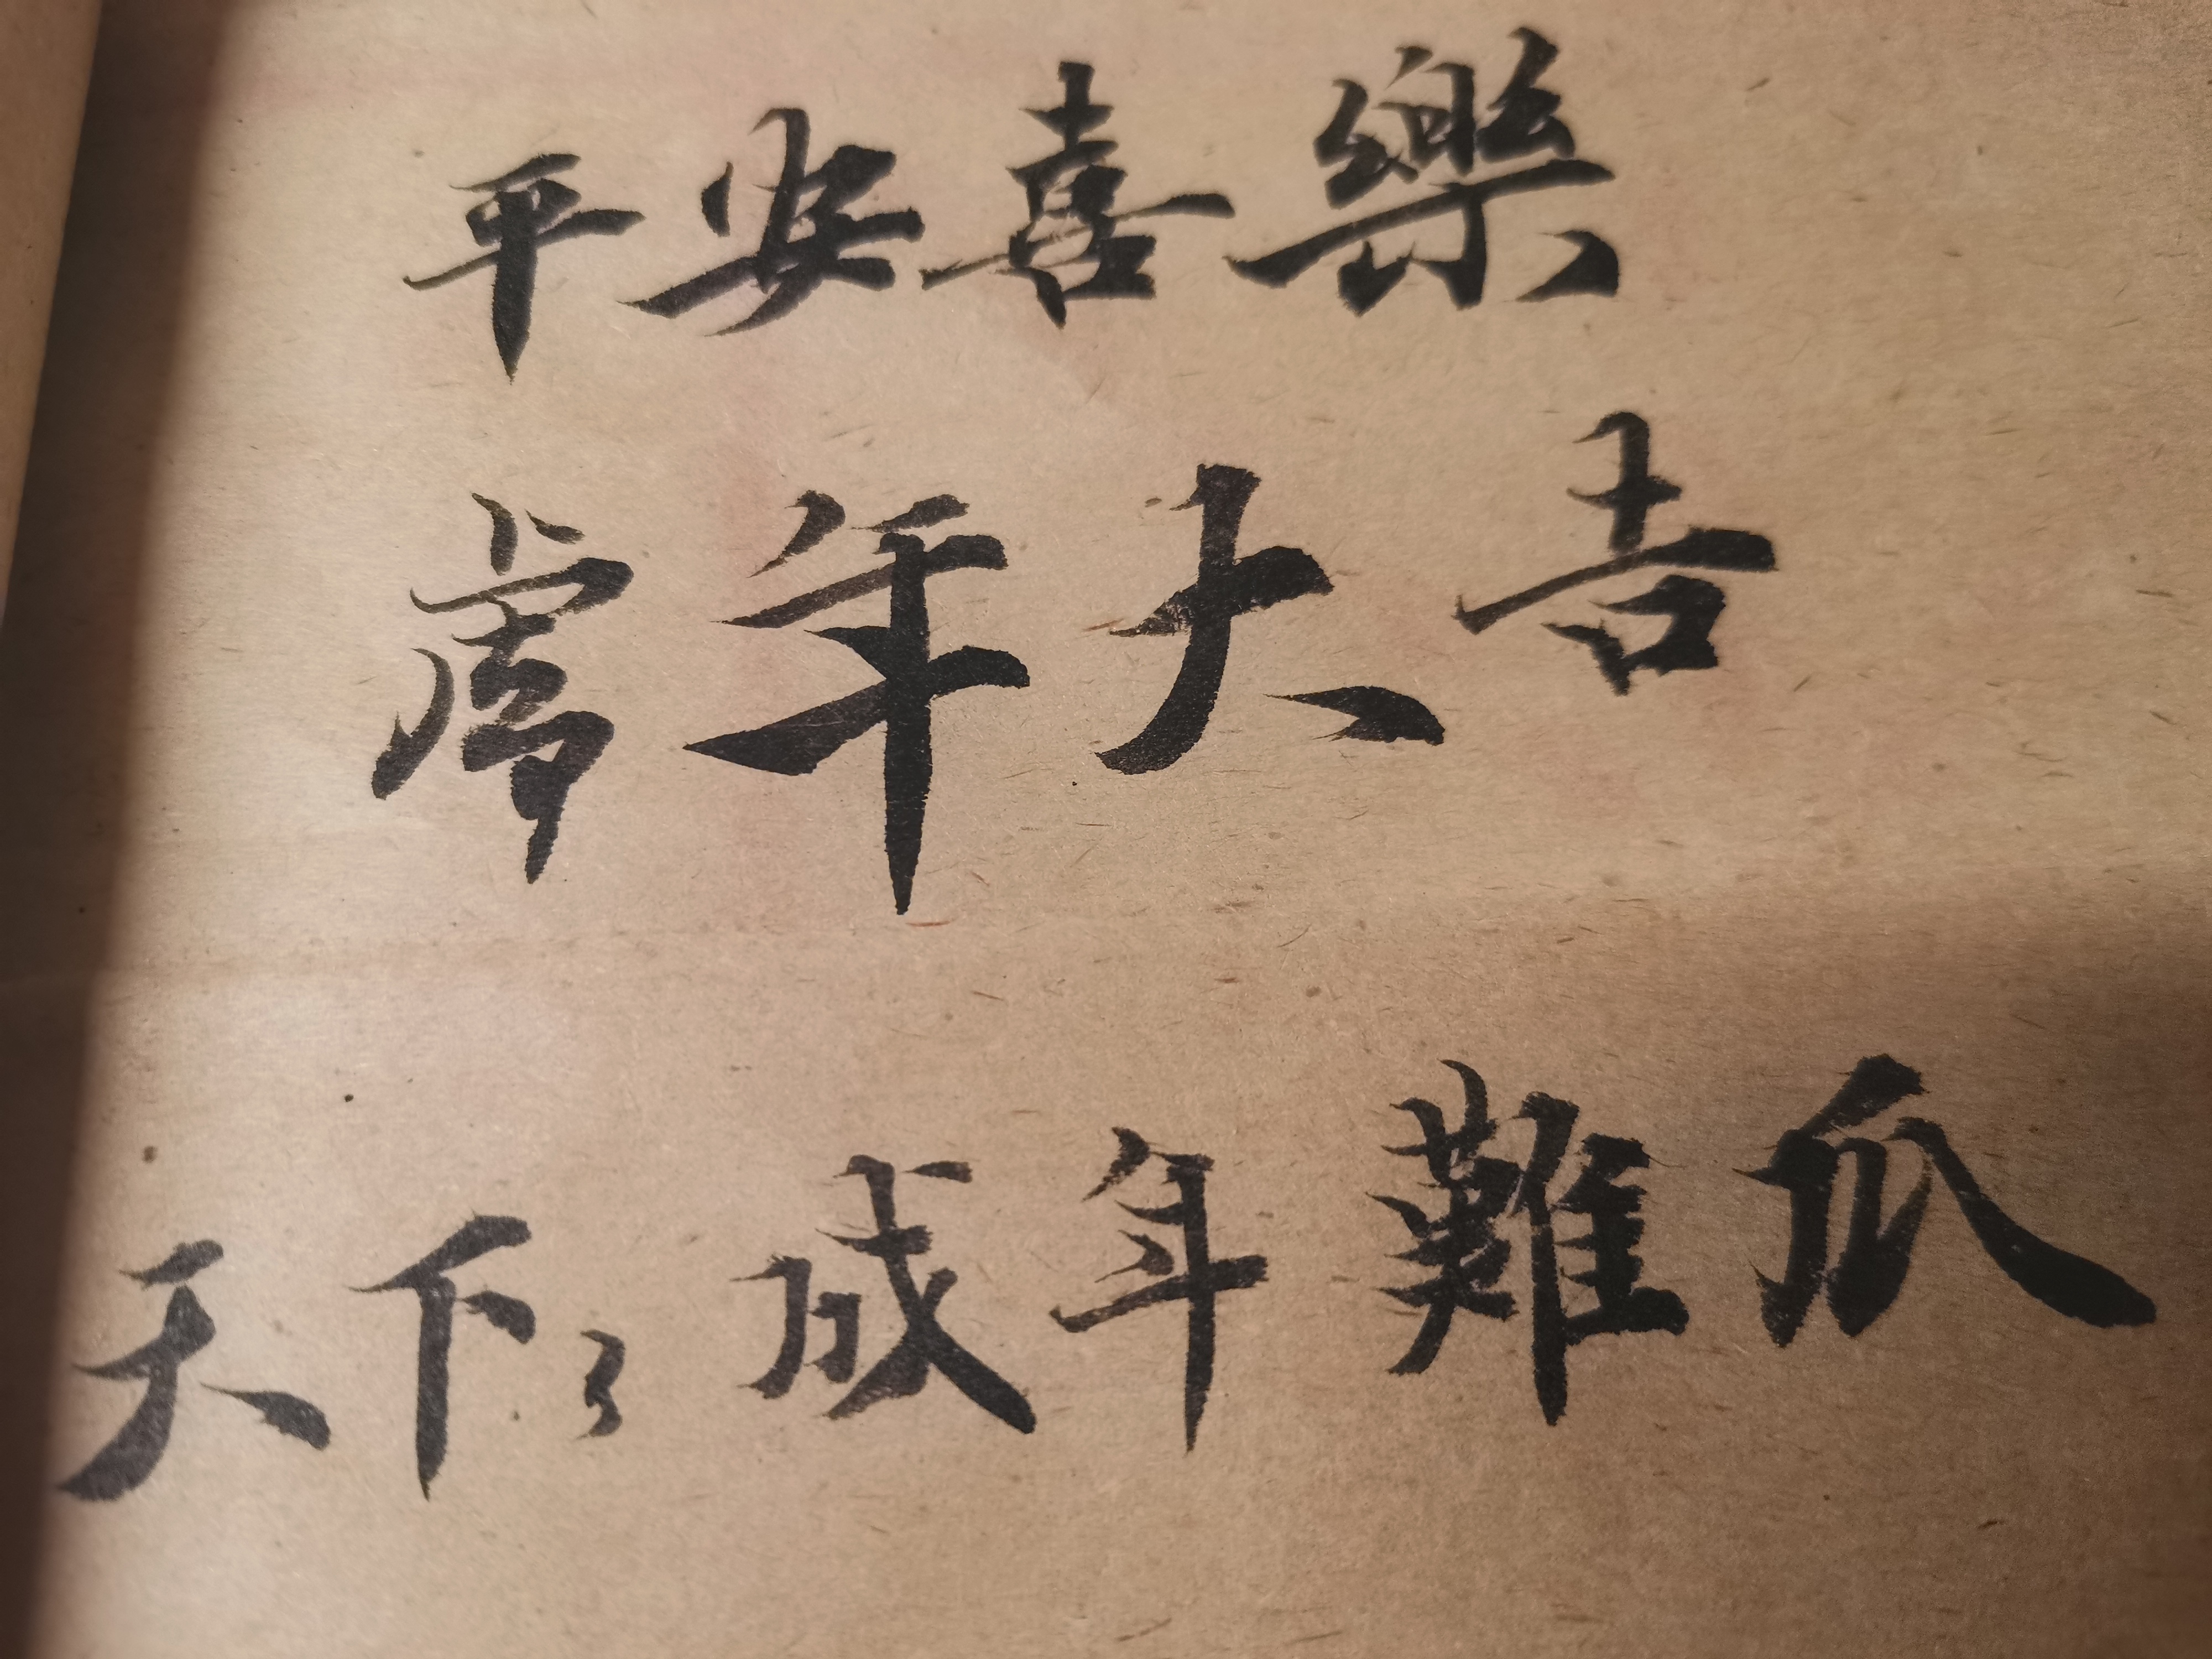 平安喜樂
虎年大吉
天下 成年難瓜